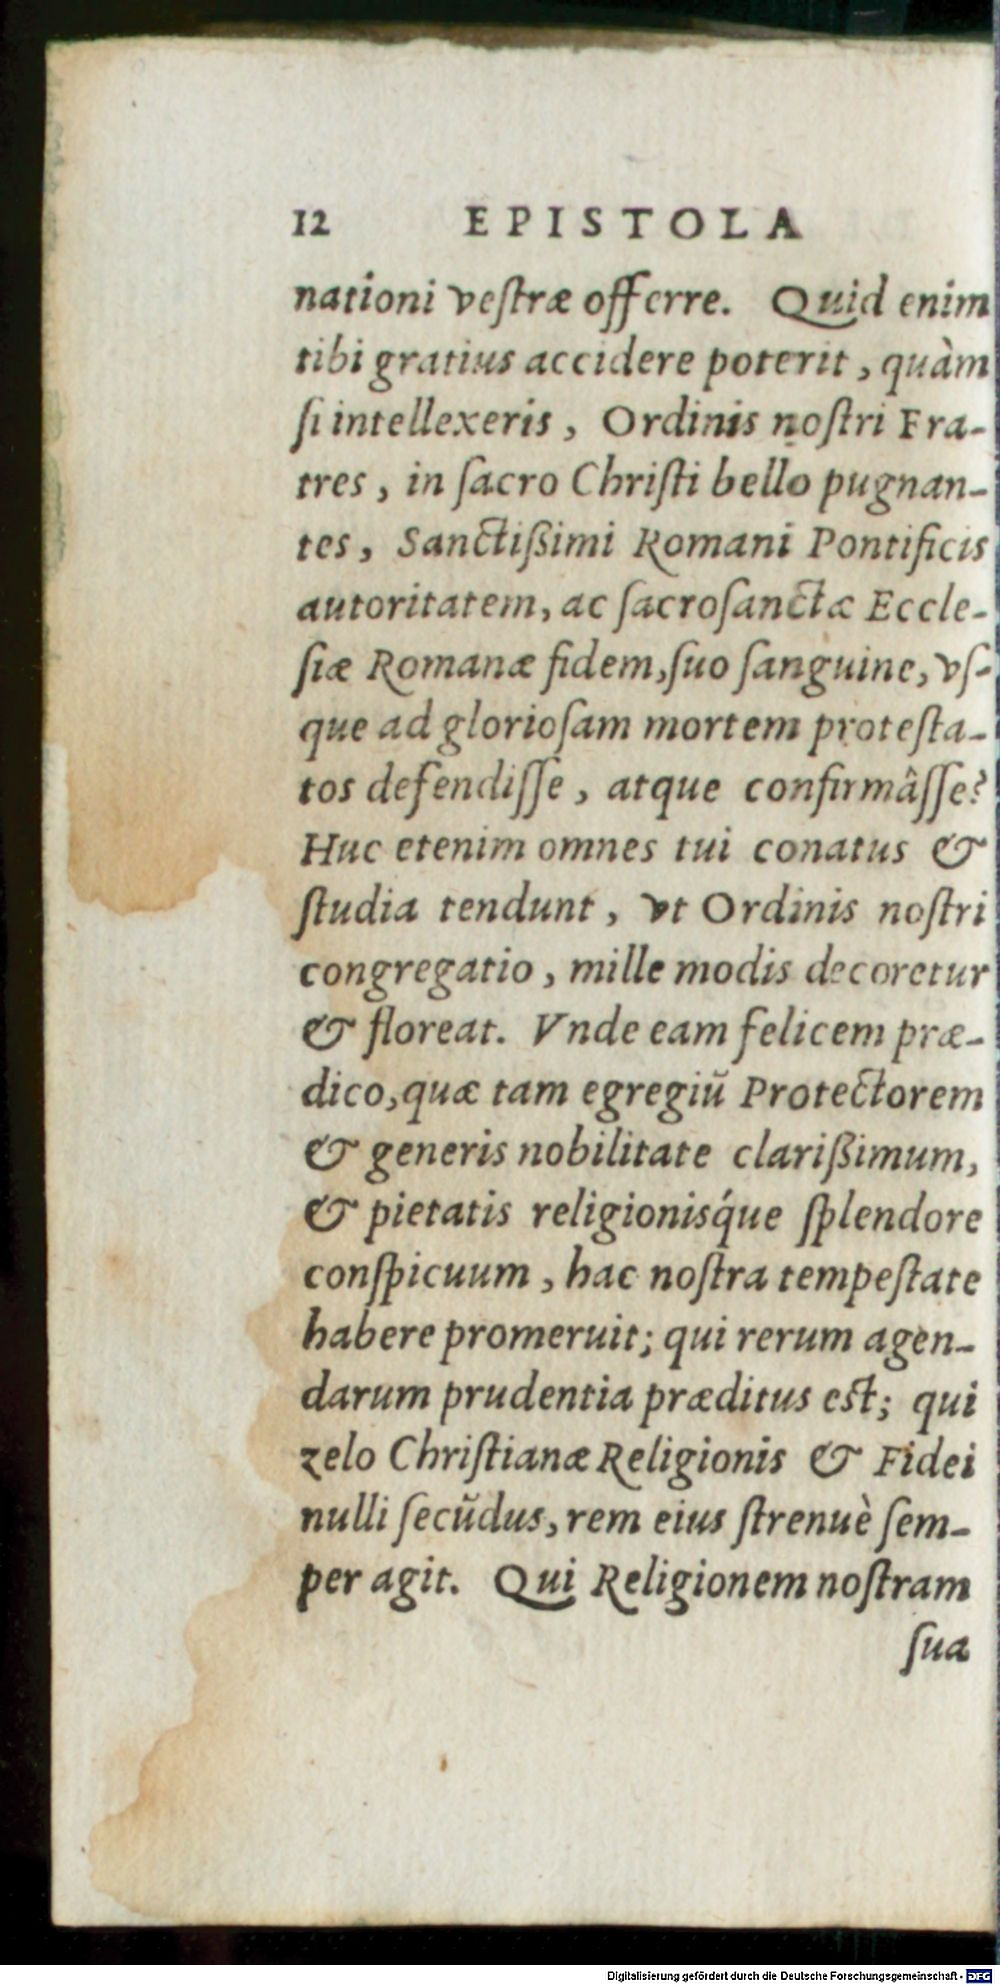 12 EPISTOLA
nationi vestræ offerre. Quid enim
tibi gratius accidere poterit, quàm
ſi intellexeris, Ordinis noſtri Fra-
tres, in ſacro Chriſti bello pugnan-
tes, Sanctißimi Romani Pontificis
autoritatem, ac ſacroſanctæ Eccle-
ſiæ Romanæ fidem, ſuo ſanguine, vſ-
que ad glorioſam mortem proteſta-
tos defendiſſe, atque confirmâſſe?
Huc etenim omnes tui conatus &
ſtudia tendunt, vt Ordinis noſtri
congregatio, mille modis decoretur
& floreat. Vnde eam felicem præ-
dico, quæ tam egregiũ Protectorem
& generis nobilitate clarißimum,
& pietatis religionisq́ue ſplendore
conſpicuum, hac noſtra tempeſtate
habere promeruit; qui rerum agen-
darum prudentia præditus est; qui
zelo Chriſtianæ Religionis & Fidei
nulli ſecũdus, rem eius ſtrenuè ſem-
per agit. Qui Religionem noſtram
ſua
Digitalisierung gefördert durch die Deutsche Forschungsgemeinschaft - DFG